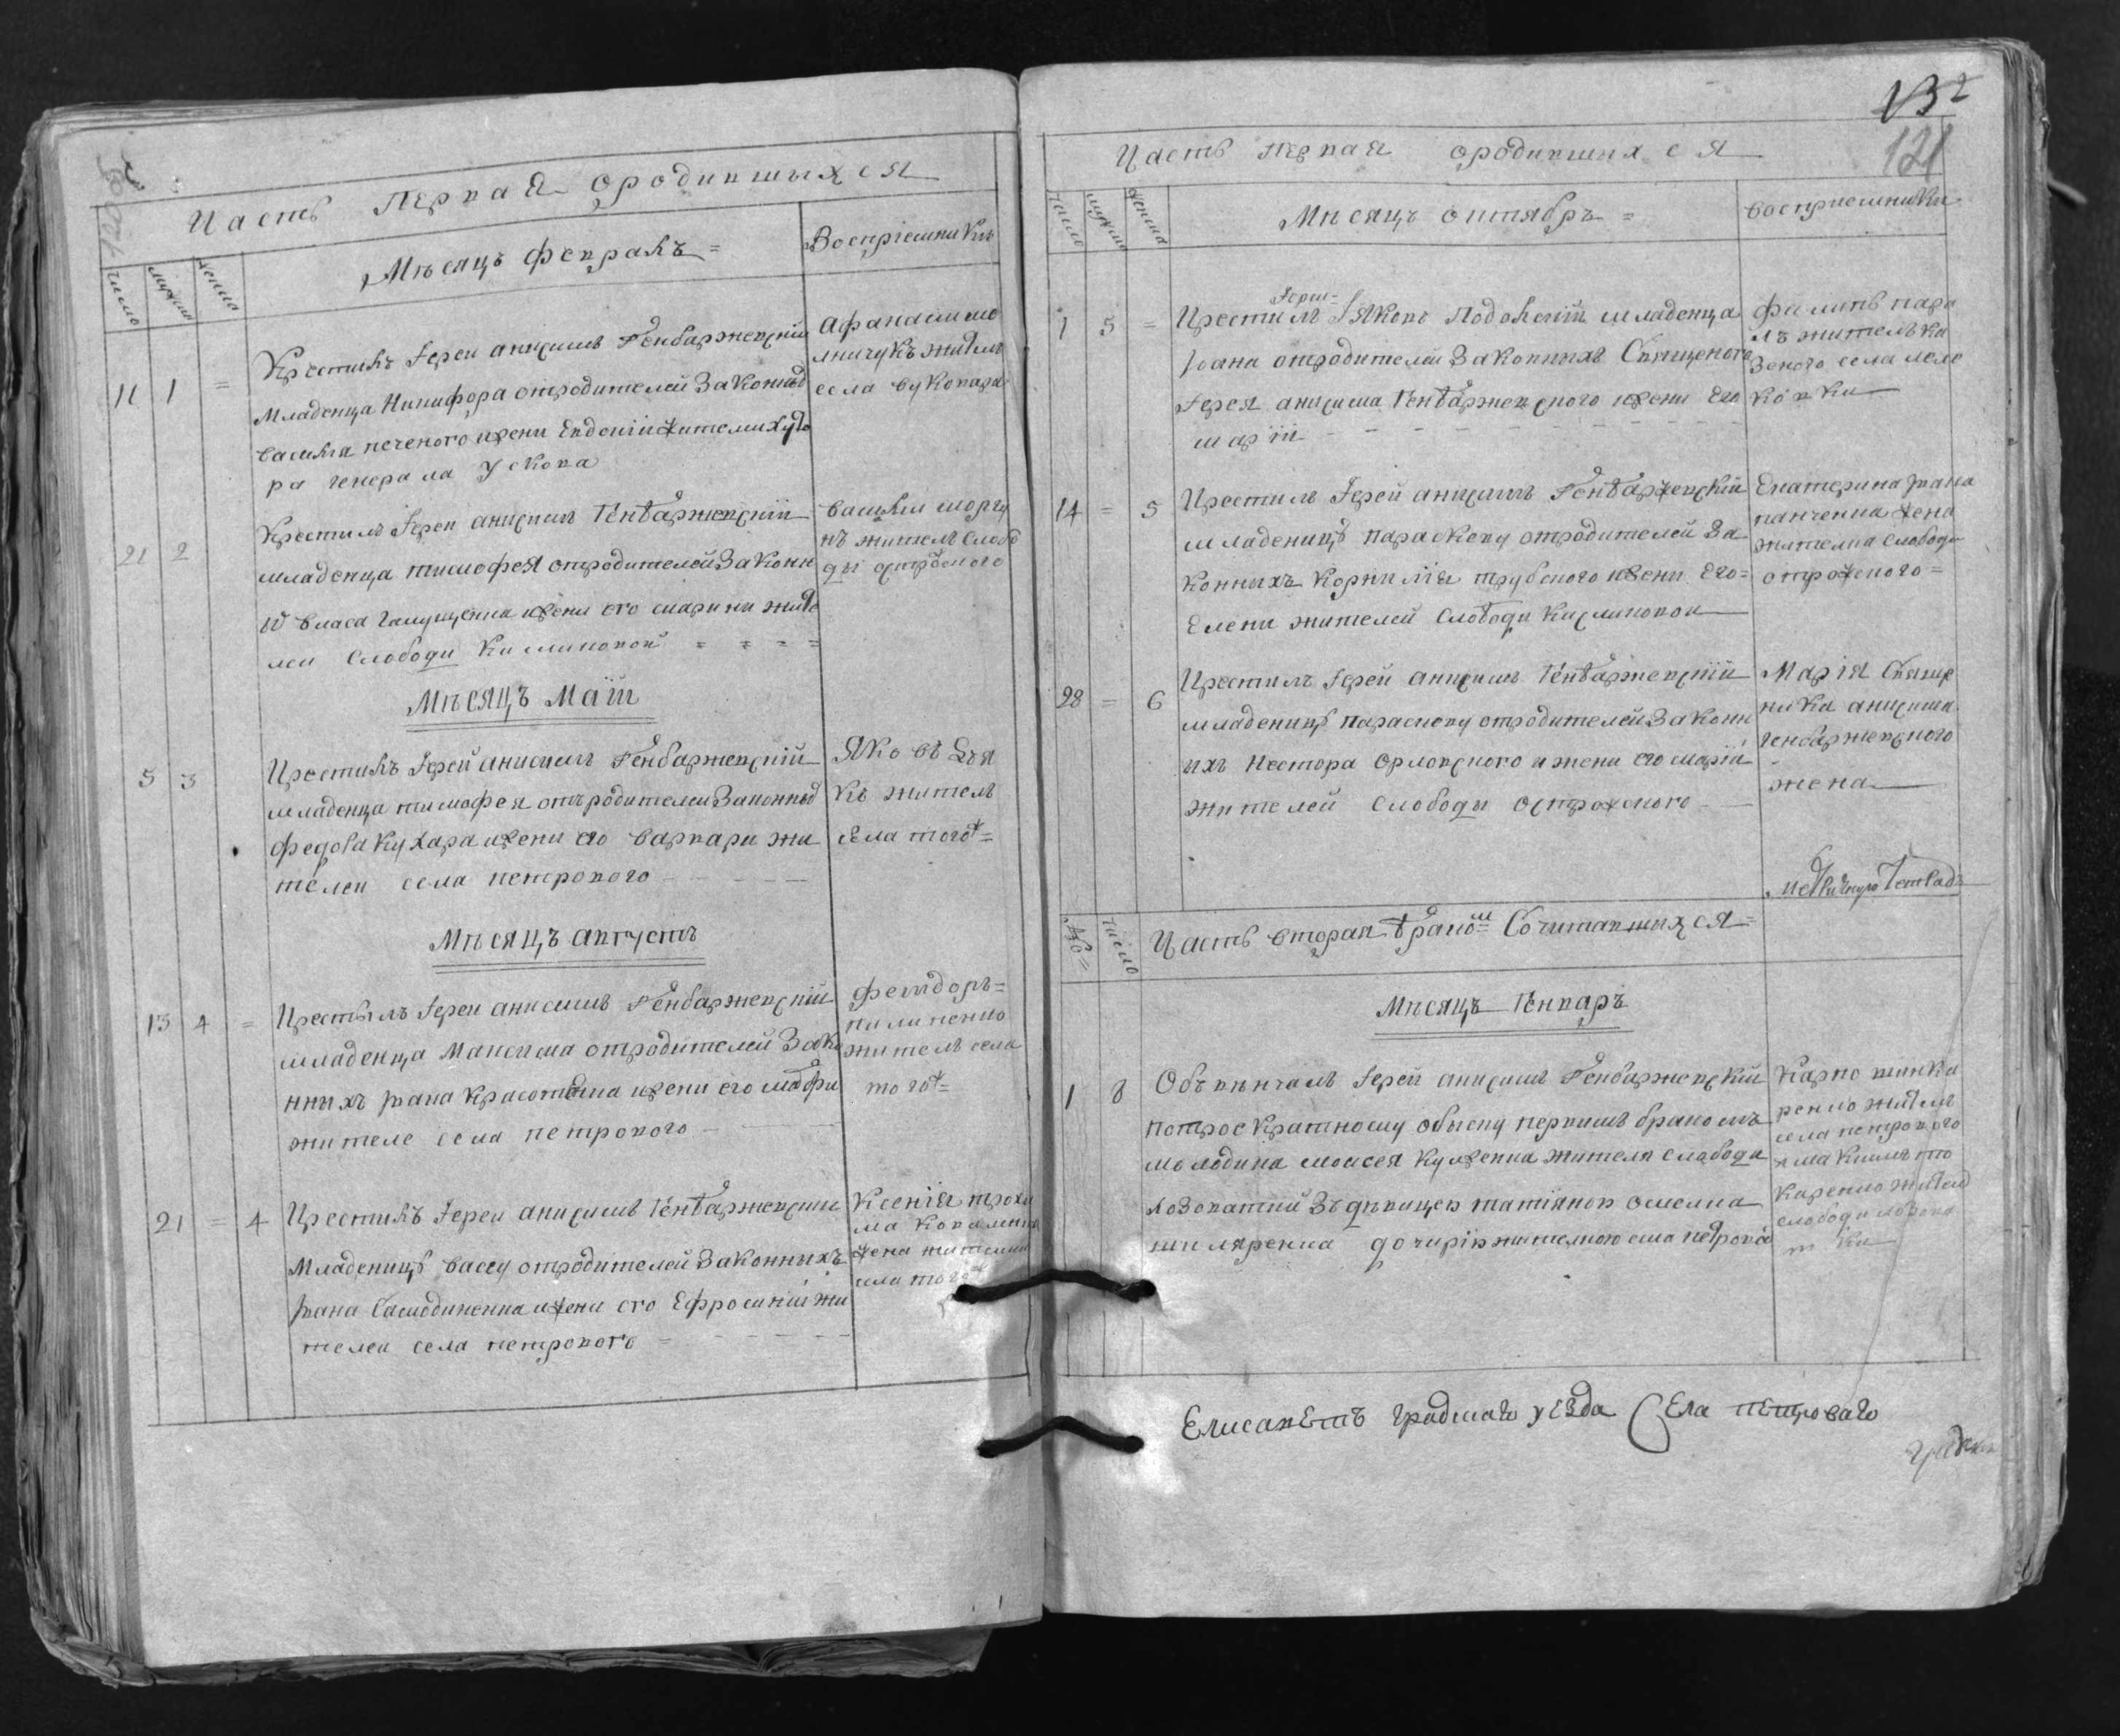 Часть Первая ородившыхся
число
мужска
женска
Мѣсяцъ февраль =
Воспріемники
11 1 =
Крестилъ Іереи анисимъ Генбаржевскій
младенца Никифора отродителей Законыхъ
василія печеного ижени Евдокіи жителми хуто
ра генерала Ускова
жытель
села вуковара
21 2
Крестилъ Іереи анисимъ Генваржевскій
младенца тимофея отродителей Законн
ѿ власа галущенка ижени его марини жите
леи Слободи Калиновой = = = =
василій моргу
нъ житель Слобо
ды острожского
Мѣсяцъ Маій
5 3
Крестилъ Іерей анисимъ Генбаржевскій
младенца тимофея отъродителеи Законныхъ
федора кухара ижени его варвари жи
телеи села петрового
Яковъ Дья
къ житель
села тогожъ =
Мѣсяцъ августъ
13 4 =
Крестылъ Іереи анисимъ Генбаржевскій
младенца Максима отродителей Зако
нныхъ Ивана Красота ижени его марфи
жителе села петрового
феиодоръ =
пилипенко
житель села
тогожъ =
21 = 4
Крестилъ Іереи анисимъ Генваржевскии
Младеницу вассу отродителей Законныхъ
Ивана Самодиненка ижени его Ефросиніи жи
телеи села петрового =
Ксенія трохи
ма коваленка
жена жителки
села тогожъ
132
121
Часть первая ородившихся
число
мужска
женска
Мѣсяцъ октябръ =
восприемники
1 5 =
Іереи =
Крестилъ Іяковъ Подолскій младенца
Іоана отродителей Законныхъ Священого
Іерея анисима Генваржевского ижени Его
маріи
филипъ
житель ка
зеного села
14 = 5
Крестилъ Іерей анисимъ Генваржевскій
младеницу параскеву отродителей За
конныхъ Корнилія трубского ижени Его =
Елени жителей Слободи Калиновои
Екатерина Ивана
панченка жена
жителка слободи
отрожского =
28 = 6
Крестилъ Іерей анисимъ Генваржевскій
младеницу параскову отродителей Законн
ихъ Нестора Орловского ижени его маріи
жителей слободы острожского
Марія Священ
ника анисима
генбаржевского
жена
№ =
число
Часть вторая бракомъ Сочитавшыхся =
Мѣсяцъ Генваръ
1 8
Объвѣнчалъ Іерей анисимъ Генбаржевскій
потроекратному обыску первимъ бракомъ
молодика моисея куценка жителя слободи
лозоватки Зъ дѣвицею татіяною омелка
шкляренка дочирію жителкою села петрова
Карпо шинка
ренко житель
села петрового
и макшимъ тко
каренко жителъ
слободи лозова
т ки
Елисаветъ градскаго уезда Села петроваго